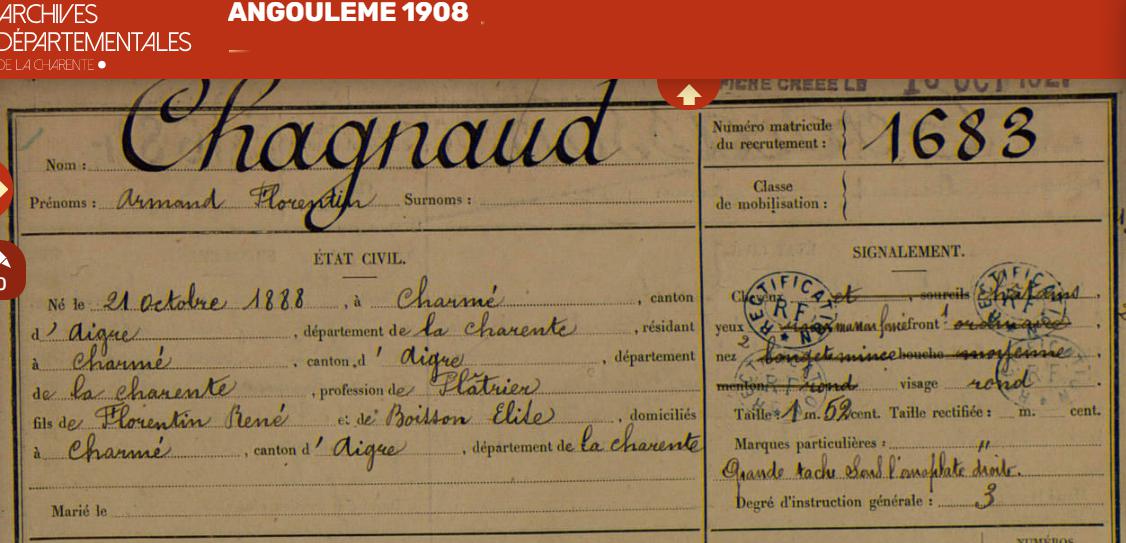 ARCHIVES
DÉPARTEMENTALES
DE LA CHARENTE
ANGOULEME 1908
FICHE CRÉÉE LE 10 OCT
Nom : Chagnaud
Prénoms : Armand Florentin Surnoms :
Numéro matricule
du recrutement : 1683
Classe
de mobilisation :
ÉTAT CIVIL.
Né le 21 octobre 1888, à Charmé, canton
d'Aigre, département de la charente, résidant
à Charmé, canton d'Aigre, département
de la charente, profession de Plâtrier
fils de Florentin René et de Boisson Elise, domiciliés
à Charmé, canton d'Aigre, département de la charente
Marié le
SIGNALEMENT.
Cheveux et, sourcils chatains,
yeux marron foncé front 1 ordinaire,
2
nez long et mince bouche moyenne,
menton rond visage rond.
Taille : 1 m. 52 cent. Taille rectifiée : m. cent.
Marques particulières : "
Grande tache sous l'omoplate droite.
Degré d'instruction générale : 3
RECTIFICATION
RF
RECTIFICATION
RF
NUMÉROS